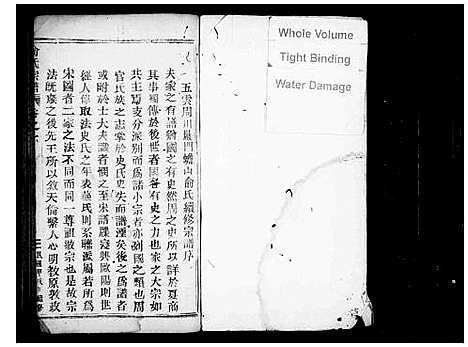 五雲周川嚴門蟾山俞氏續修宗譜序
夫家之有譜猶國之有史然周之史所以詳於夏商
其事獨傳於後世者國各有史之力也家之大宗如
共主焉支分派別而爲諸小宗者亦列國之類也周
官氏族之志掌於史氏史失而譜湮矣後之爲士
或附於士大夫識者憫之至宋譜牒寖興歐陽則世
經人緯取法史氏之年表蘇氏則系聯派屬若所爲
宋圖者二家之法不同而同一尊祖敬宗也是故宗
法既廢之後先王所以敘天倫繫人心明教原敦政
Whole Volume
Tight Binding
Water Damage